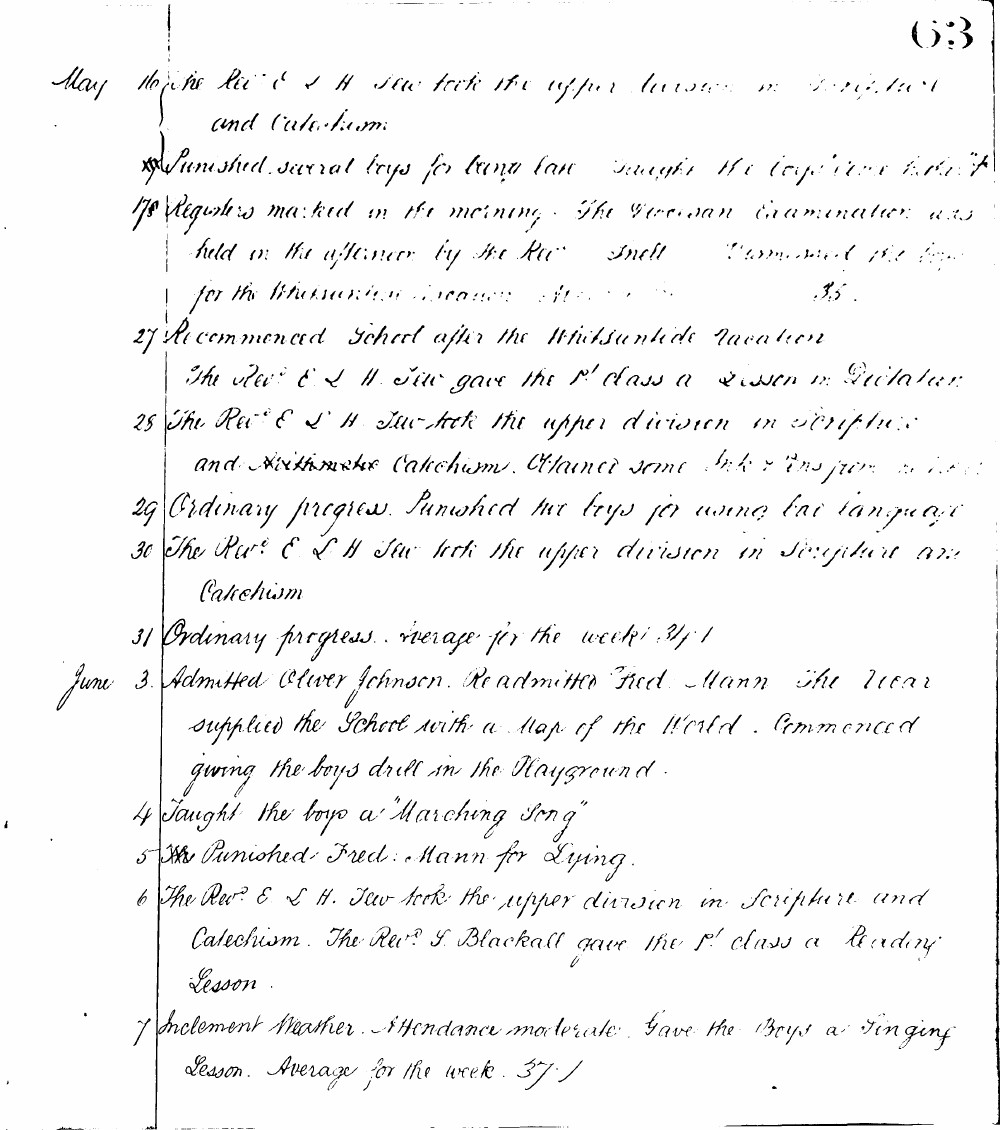 63
May 16 The Rev.d E L H Tew took the upper division in Scripture
and Catechism
Punished several boys for being late Taught the boys
178 Registers marked in the morning. The Diocesan Examination was
held in the afternoon by the Rev.d Snell Dismissed the boys
for the Whitsuntide Vacation 35.
27 Recommenced School after the Whitsuntide Vacation
The Rev.d E L H. Tew gave the 1st class a Lesson in Dictation
28 The Rev.d E L H Tew took the upper division in Scripture
and Arithmetic Catechism. Obtained some Ink & Pens from
29 Ordinary progress. Punished two boys for using bad language
30 The Rev.d E L H Tew took the upper division in Scripture and
Catechism
31 Ordinary progress. Average for the week 34.1
June 3. Admitted Oliver Johnson. Readmitted Fred. Mann The Vicar
supplied the School with a Map of the World. Commenced
giving the boys drill in the Playground.
4 Taught the boys a "Marching Song"
5 Punished Fred: Mann for Lying.
6 The Rev.d E L H. Tew took the upper division in Scripture and
Catechism. The Rev.d S. Blackall gave the 1st class a Reading
Lesson.
7 Inclement Weather. Attendance moderate. Gave the Boys a Singing
Lesson. Average for the week. 37.1